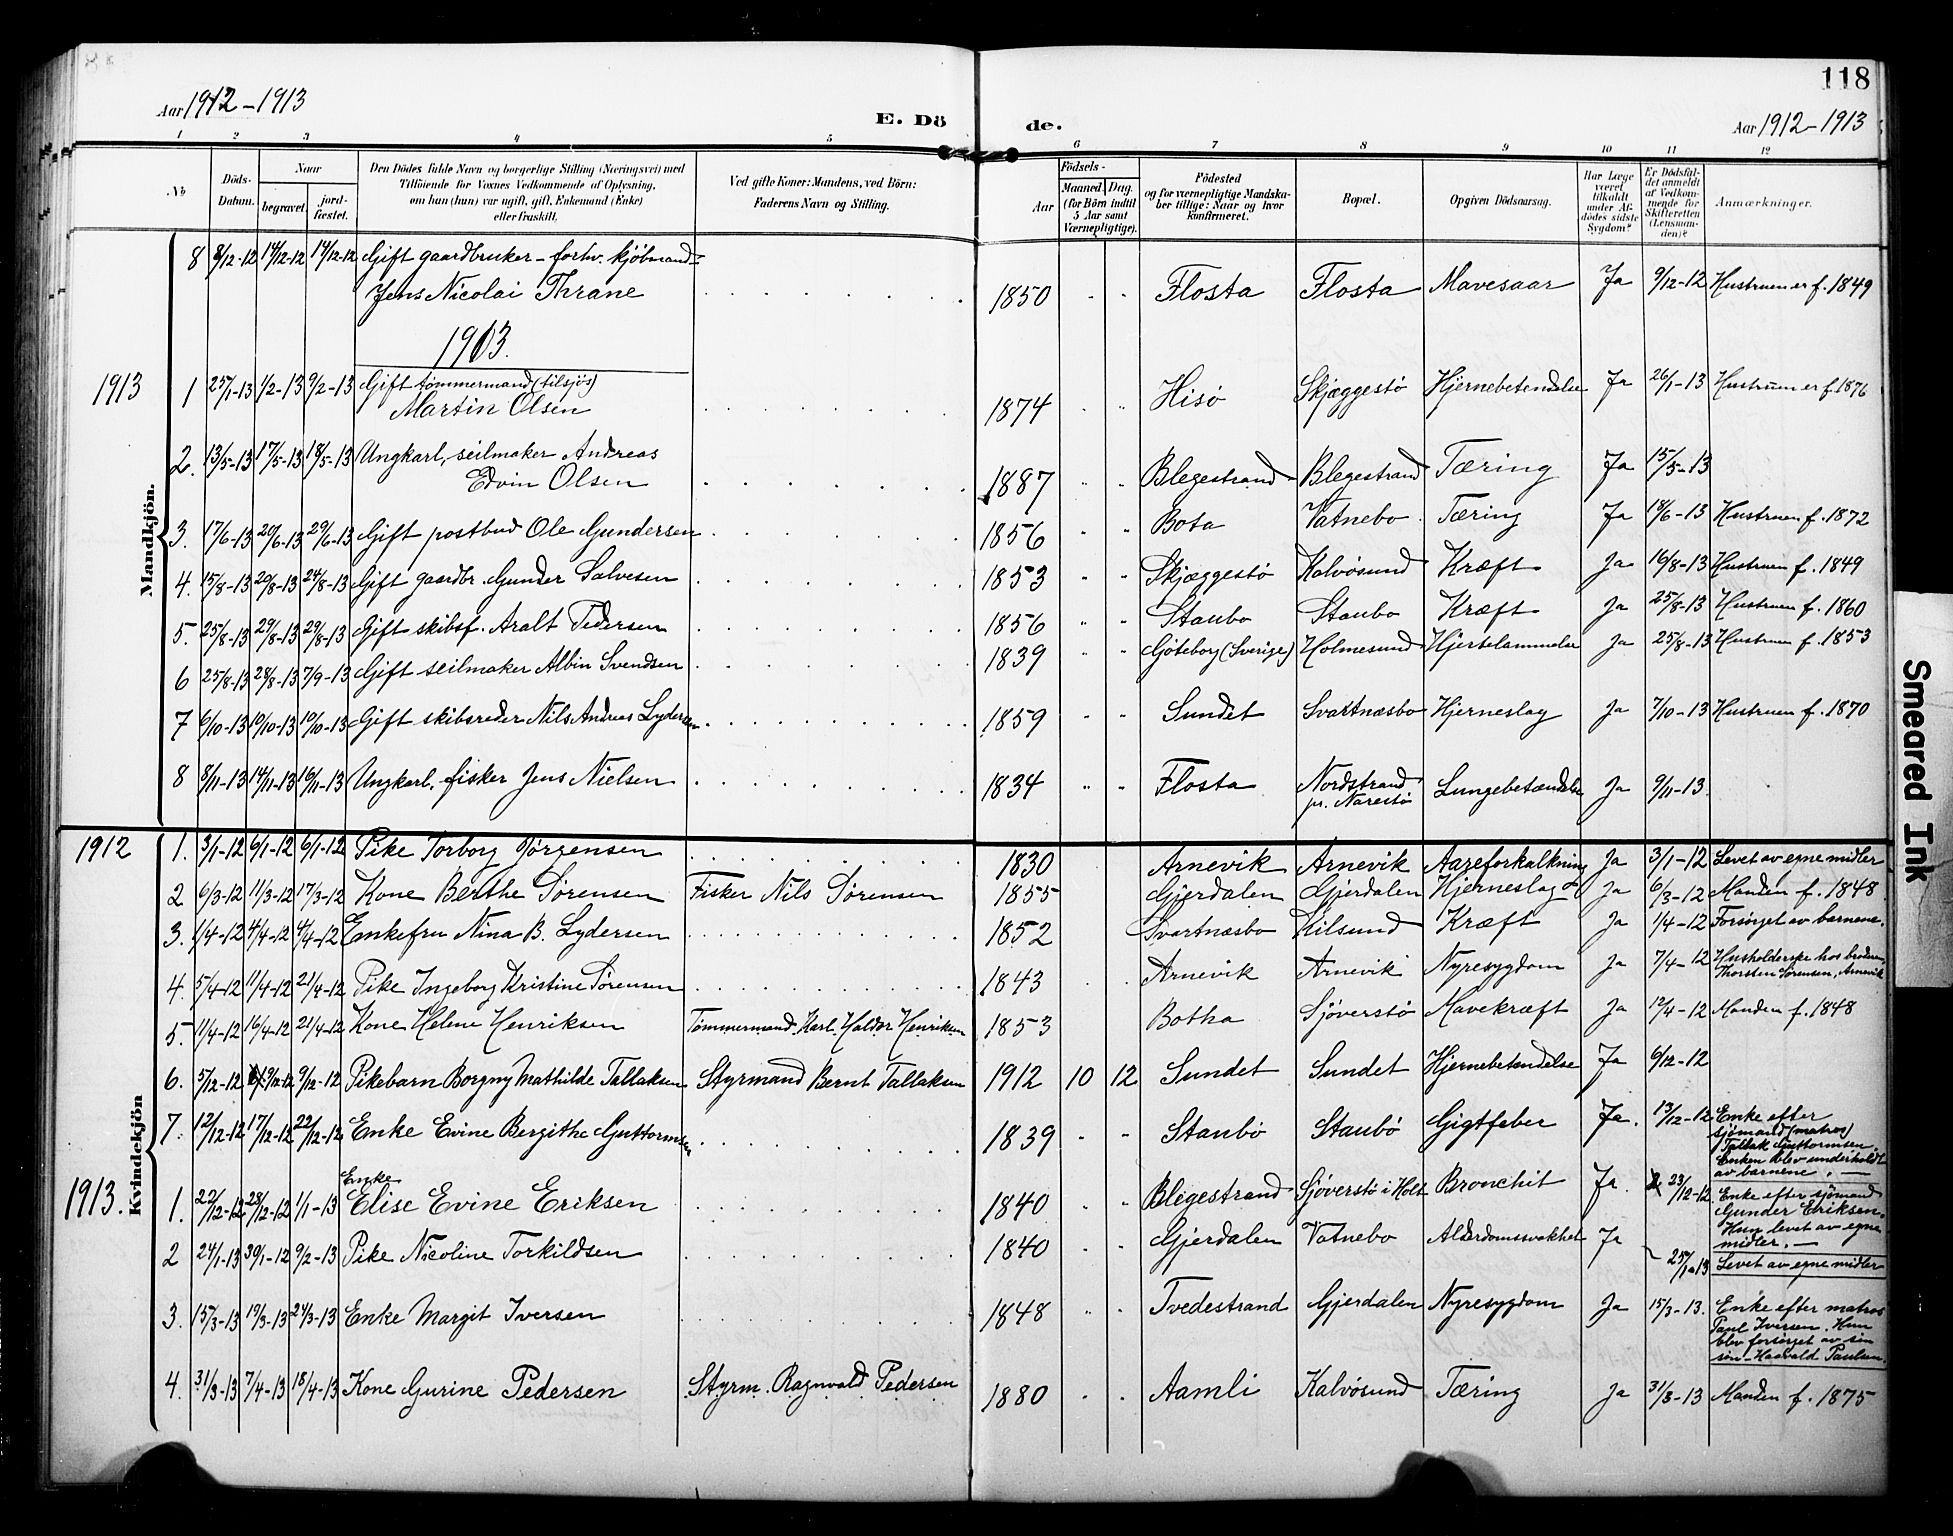 118
Aar 1912-1913
E. Dö de.
Aar 1912-1913
1 2 3 4 5 6 7 8 9 10 11 12
No
Döds-Datum.
Naar
begravet.
jordfæstet.
Den Dödes fulde Navn og borgerlige Stilling (Næringsvei) med
Tilföiende for Voxnes Vedkommende af Oplysning,
om han (hun) var ugift, gift, Enkemand (Enke)
eller fraskilt.
Ved gifte Koner: Mandens, ved Börn:
Faderens Navn og Stilling.
Födsels-
Aar
Maaned. Dag.
(for Börn indtil 5 Aar samt Værnepligtige).
Födested
og for værnepligtige Mandskaber tillige: Naar og hvor konfirmeret.
Bopæl.
Opgiven Dödsaarsag.
Har Læge været tilkaldt under Afdödes sidste Sygdom?
Er Dödsfaldet anmeldt af Vedkommende for Skifteretten (Lensmanden)?
Anmærkninger.
Mandkjön.
8 8/12-12 14/12-12 14/12-12 Gift gaardbruker - forhv. kjöbmand - Jens Nicolai Thrane 1850 Flosta Flosta Mavesaar Ja 9/12-12 Hustruen er f. 1849
1913.
1913 1 25/1-13 1/2-13 9/2-13 Gift tömmermand (tilsjös) Martin Olsen 1874 Hisö Skjæggestö Hjernebetendelse Ja 26/1-13 Hustruen er f. 1876
2. 13/5-13 17/5-13 18/5-13 Ungkarl, seilmaker Andreas Edvin Olsen 1887 Blegestrand Blegestrand Tæring Ja 15/5-13
3. 17/6-13 20/6-13 29/6-13 Gift postbud Ole Gundersen 1856 Bota Vatnebo Tæring Ja 18/6-13 Hustruen f. 1872
4. 15/8-13 20/8-13 24/8-13 Gift gaardbr. Gunder Salvesen 1853 Skjæggestö Kalvösund Kræft Ja 16/8-13 Hustruen f. 1849
5. 25/8-13 29/8-13 29/8-13 Gift skibsf. Aralt Pedersen 1856 Staubo Staubo Kræft Ja 25/8-13 Hustruen f. 1860
6 25/8-13 28/8-13 7/9-13 Gift seilmaker Albin Svendsen 1839 Göteborg (Sverige) Holmesund Hjertelammelse Ja 25/8-13 Hustruen f. 1853
7 6/10-13 10/10-13 10/10-13 Gift skibsreder Nils Andreas Lydersen 1859 Sundet Svartnæsbo Hjerneslag Ja 7/10-13 Hustruen f. 1870
8 8/11-13 14/11-13 16/11-13 Ungkarl, fisker Jens Nielsen 1834 Flosta Nordstrand pr. Narestö Lungebetændelse Ja 9/11-13.
Kvindekjön
1912 1. 3/1-12 6/1-12 6/1-12 Pike Torborg Jörgensen 1830 Arnevik Arnevik Aareforkalkning Ja 3/1-12 Levet av egne midler
2 6/3-12 11/3-12 17/3-12 Kone Berthe Sörensen Fisker Nils Sörensen 1855 Gjerdalen Gjerdalen Hjerneslag Ja 6/3-12 Manden f. 1848
3. 1/4-12 4/4-12 4/4-12 Enkefru Nina B. Lydersen 1852 Svartnæsbo Kilsund Kræft Ja 1/4-12 Forsörget av barnene.
4. 5/4-12 11/4-12 21/4-12 Pike Ingeborg Kristine Sörensen 1843 Arnevik Arnevik Nyresygdom Ja 7/4-12 Husholderske hos broderen, Thorsten Sörensen, Arnevik
5. 11/4-12 16/4-12 21/4-12 Kone Helene Henriksen Tömmermand Karl Haldor Henriksen 1853 Botha Sjöverstö Mavekræft Ja 12/4-12 Manden f. 1848
6. 5/12-12 9/12-12 9/12-12 Pikebarn Borgny Mathilde Tallaksen Styrmand Bernt Tallaksen 1912 10 12 Sundet Sundet Hjernebetendelse Ja 6/12-12
7. 12/12-12 17/12-12 22/12-12 Enke Evine Bergithe Guttormsen 1839 Staubö Staubö Gigtfeber Ja. 13/12-12 Enke efter sjömand (matros) Tallak Guttormsen. Enken blev underholdt av barnene. -
1913. 1. 22/12-12 28/12-12 1/1-13 Enke Elise Evine Eriksen 1840 Blegestrand Sjöverstö i Holt Bronchit Ja. 23/12-12 Enke efter sjömand Gunder Eriksen. Hun levet av egne midler. -
2 24/1-13 30/1-12 9/2-13 Pike Nicoline Torkildsen 1840 Gjerdalen Vatnebo Alderdomssvakhet Ja 25/1-13 Levet av egne midler
3. 15/3-13 19/3-13 24/3-13 Enke Margit Iversen 1848 Tvedestrand Gjerdalen Nyresygdom Ja 15/3-13. Enke efter matros Paul Iversen. Hun blev forsörget av sin sön - Haavald Paulsen.
4. 31/3-13 7/4-13 18/4-13 Kone Gurine Pedersen Styrm. Ragnvald Pedersen 1880 Aamli Kalvösund Tæring Ja 31/3-13 Manden f. 1875
Smeared Ink